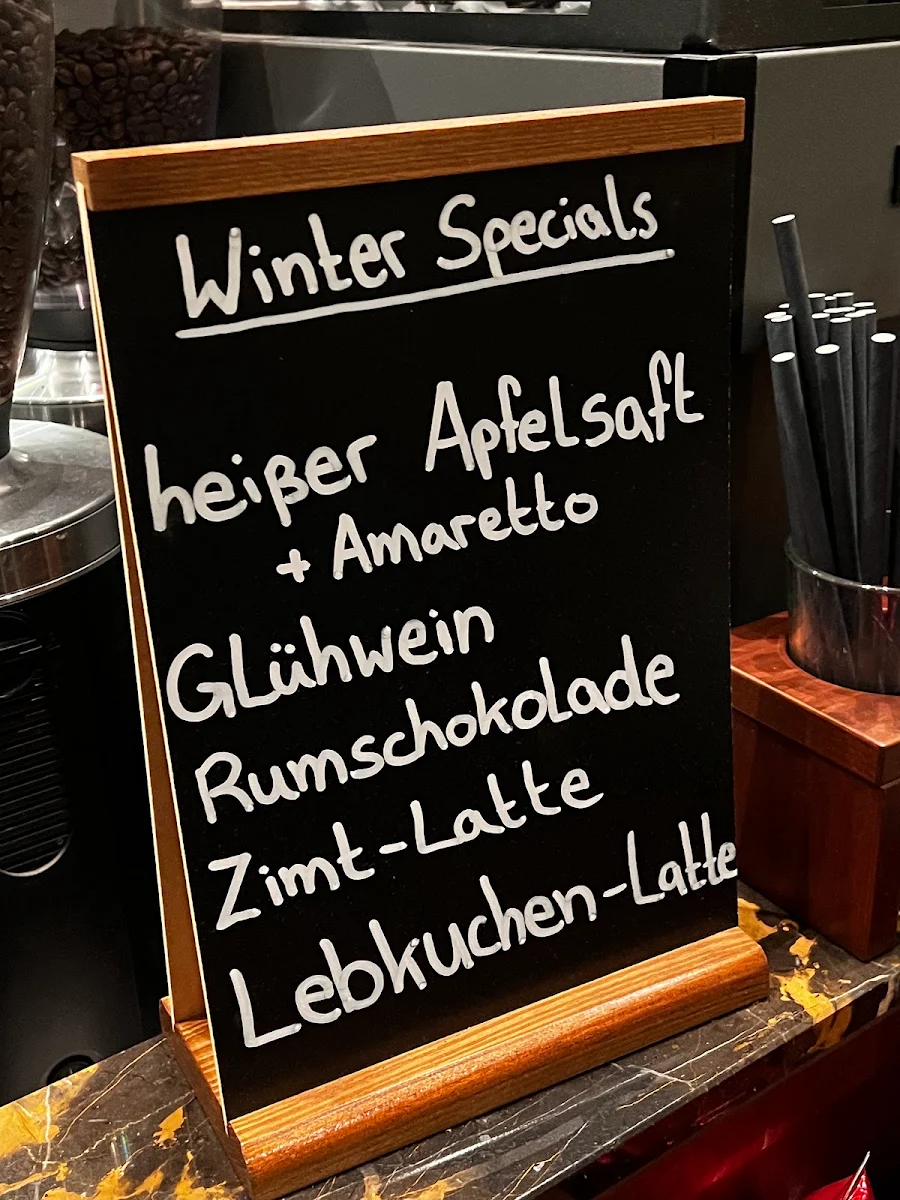 Winter Specials
heißer Apfelsaft
+ Amaretto
Glühwein
Rumschokolade
Zimt-Latte
Lebkuchen-Latte